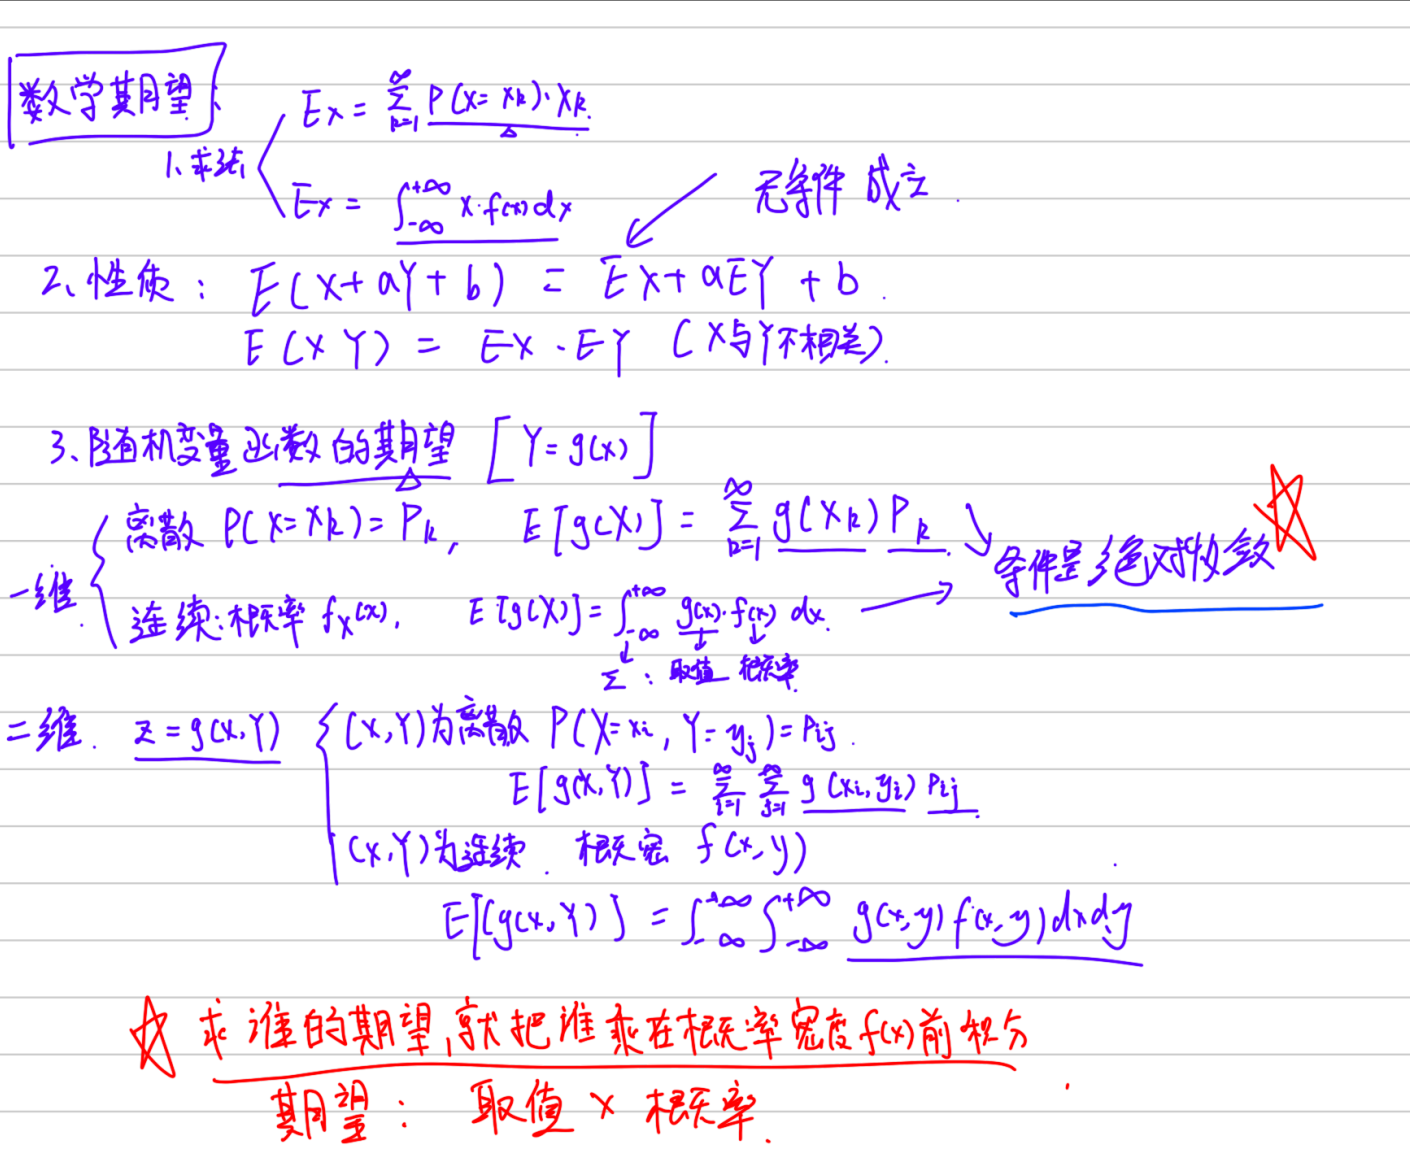 数学期望:
1、求法
EX = ∑_{k=1}^{∞} P(X=x_k)·x_k.
EX = ∫_{-∞}^{+∞} x·f(x)dx
无条件成立.
2、性质: E(X+aY+b) = EX+aEY+b.
E(XY) = EX·EY (X与Y不相关).
3、随机变量函数的期望 [Y=g(x)]
一维.
离散 P(X=X_k)=P_k, E[g(X)] = ∑_{k=1}^{∞} g(X_k) P_k.
条件是绝对收敛
连续:概率 f_X(x), E[g(X)] = ∫_{-∞}^{+∞} g(x)·f(x) dx.
∑ : 取值 概率
二维. z=g(X,Y) (X,Y)为离散 P(X=x_i, Y=y_j)=P_{ij}.
E[g(X,Y)] = ∑_{i=1}^{∞} ∑_{j=1}^{∞} g(x_i,y_i) P_{ij}
(X,Y)为连续. 概密 f(x,y)
E[(g(x,Y)] = ∫_{-∞}^{+∞} ∫_{-∞}^{+∞} g(x,y)f(x,y)dxdy
☆ 求谁的期望,就把谁乘在概率密度f(x)前积分
期望: 取值 × 概率.